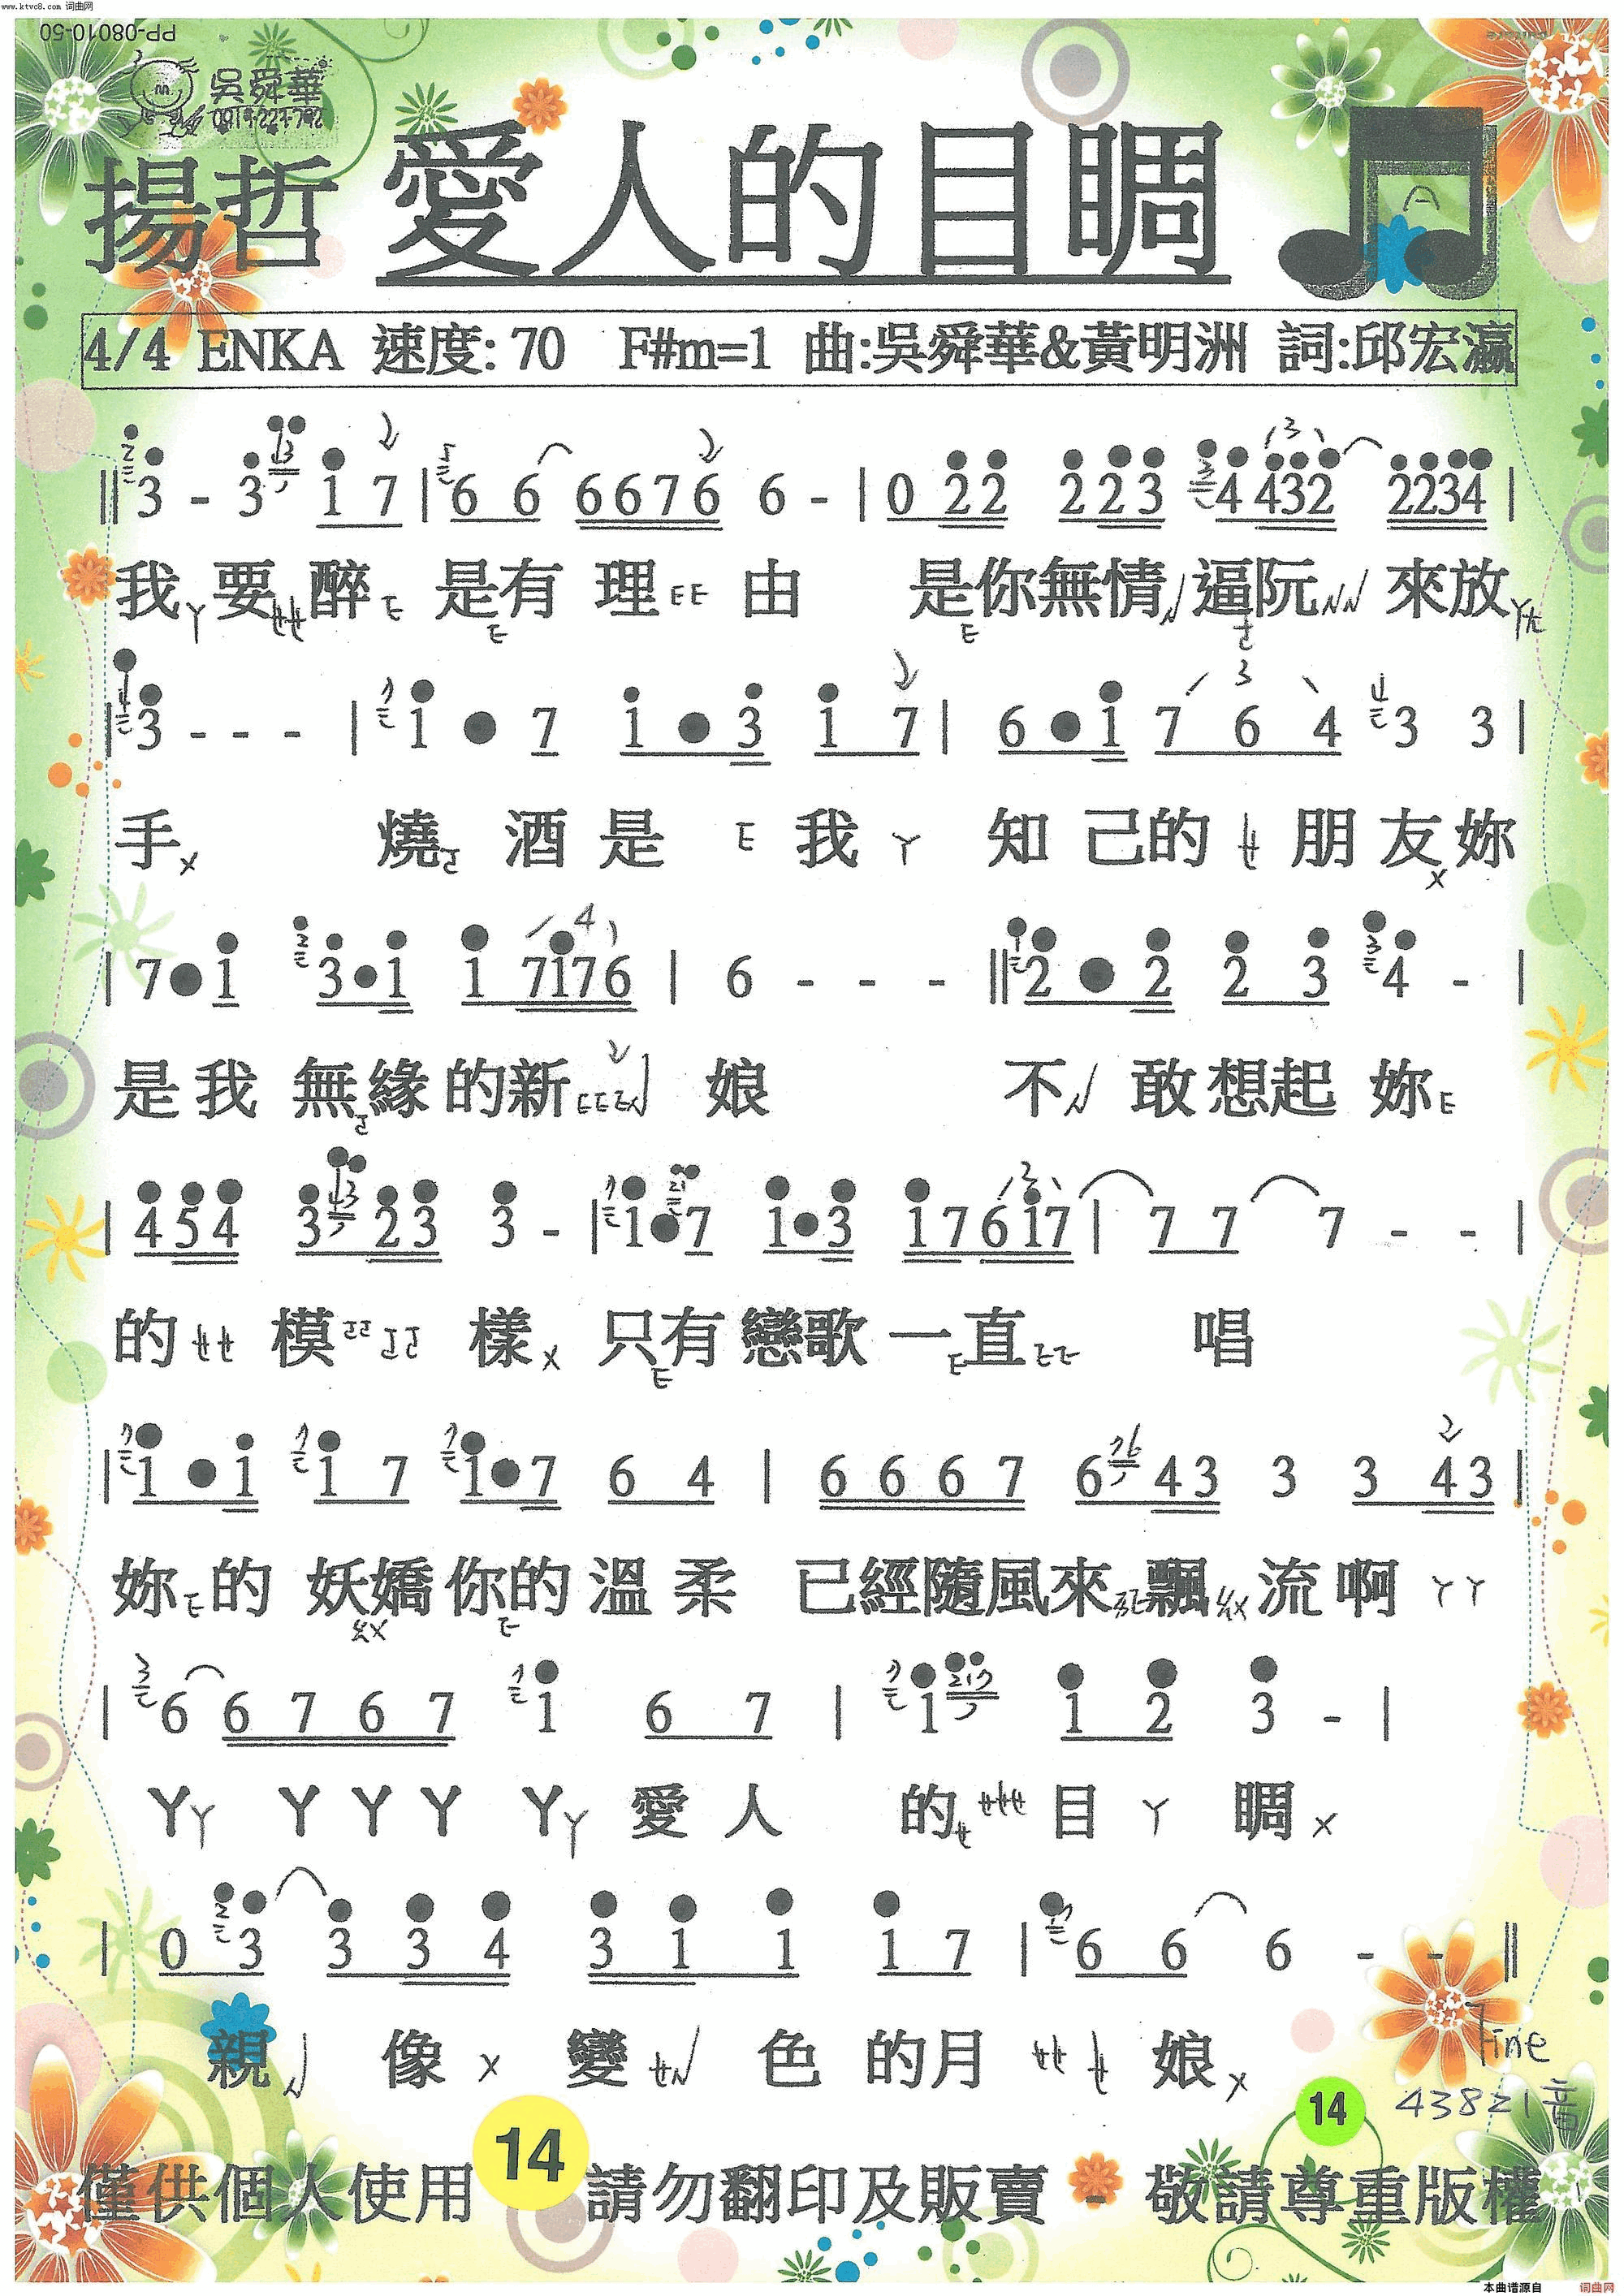 www.ktvc8.com 词曲网
PP-08010-50
吳舜華
揚哲 愛人的目睭
A
4/4 ENKA 速度: 70 F#m=1 曲:吳舜華&黃明洲 詞:邱宏瀛
3 - 3 1 7 | 6 6 6676 6 - | 0 22 223 4 432 2234 |
我 要 醉 是有 理 由 是你無情 逼阮 來放
3 - - - | 1 • 7 1 • 3 1 7 | 6 • 1 7 6 4 3 3 |
手 燒 酒 是 我 知 己的 朋 友 妳
| 7 • 1 3 • 1 1 7176 | 6 - - - || 2 • 2 2 3 4 - |
是 我 無緣 的新 娘 不 敢想起 妳
| 454 3 23 3 - | 1 • 7 1 • 3 17617 | 7 7 7 - - |
的 模 樣 只有 戀歌 一直 唱
| 1 • 1 1 7 1 • 7 6 4 | 6 6 6 7 6 43 3 3 43 |
妳 的 妖嬌 你的 溫 柔 已經隨風來 飄 流 啊 ㄚㄚ
| 6 6 7 6 7 1 6 7 | 1 1 2 3 - |
ㄚㄚ ㄚ ㄚ ㄚ ㄚㄚ 愛 人 的 目 ㄚ 睭
| 0 3 3 3 4 3 1 1 1 7 | 6 6 6 - - ||
親 像 變 色 的月 娘
Fine
43821音
14
14
僅供個人使用 請勿翻印及販賣 - 敬請尊重版權
本曲谱源自 词曲网